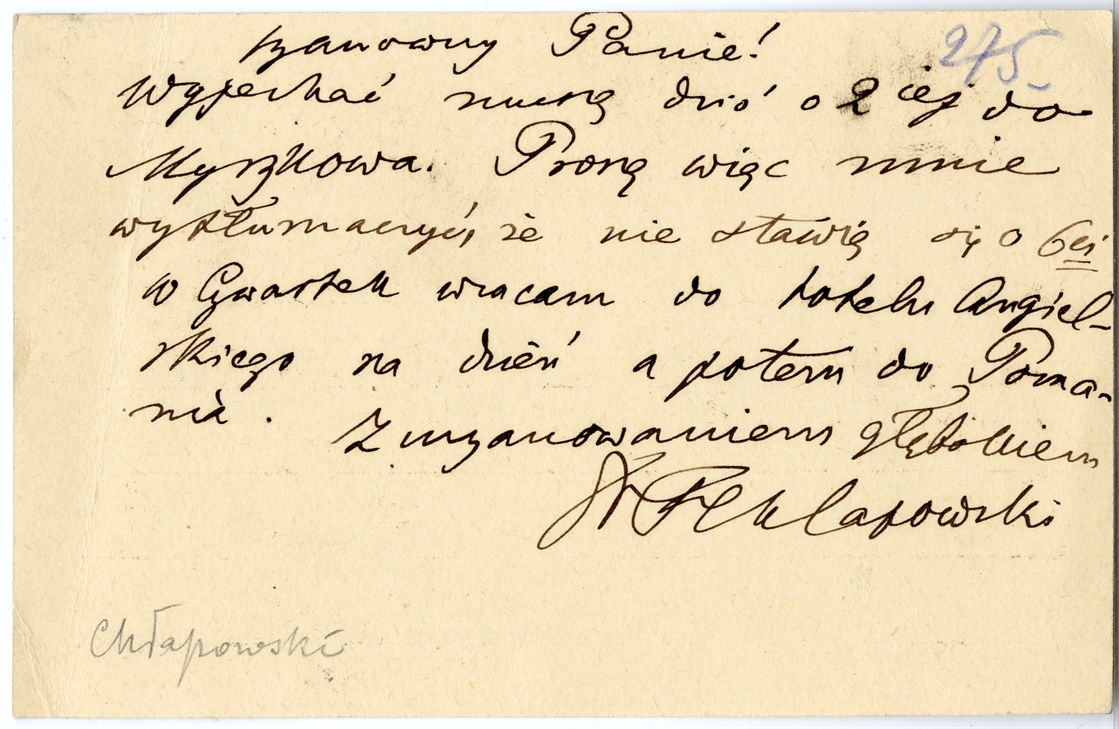 Szanowny Panie!
275.
Wyjechać muszę dziś o 2ciej do
Myszkowa. Proszę więc mnie
wytłumaczyć, że nie stawię się o 6ej
w Czwartek wracam do hotelu Angiel-
skiego na dzień a potem do Pozna-
nia.
Z uszanowaniem głębokiem
Chłapowski
Chłapowski